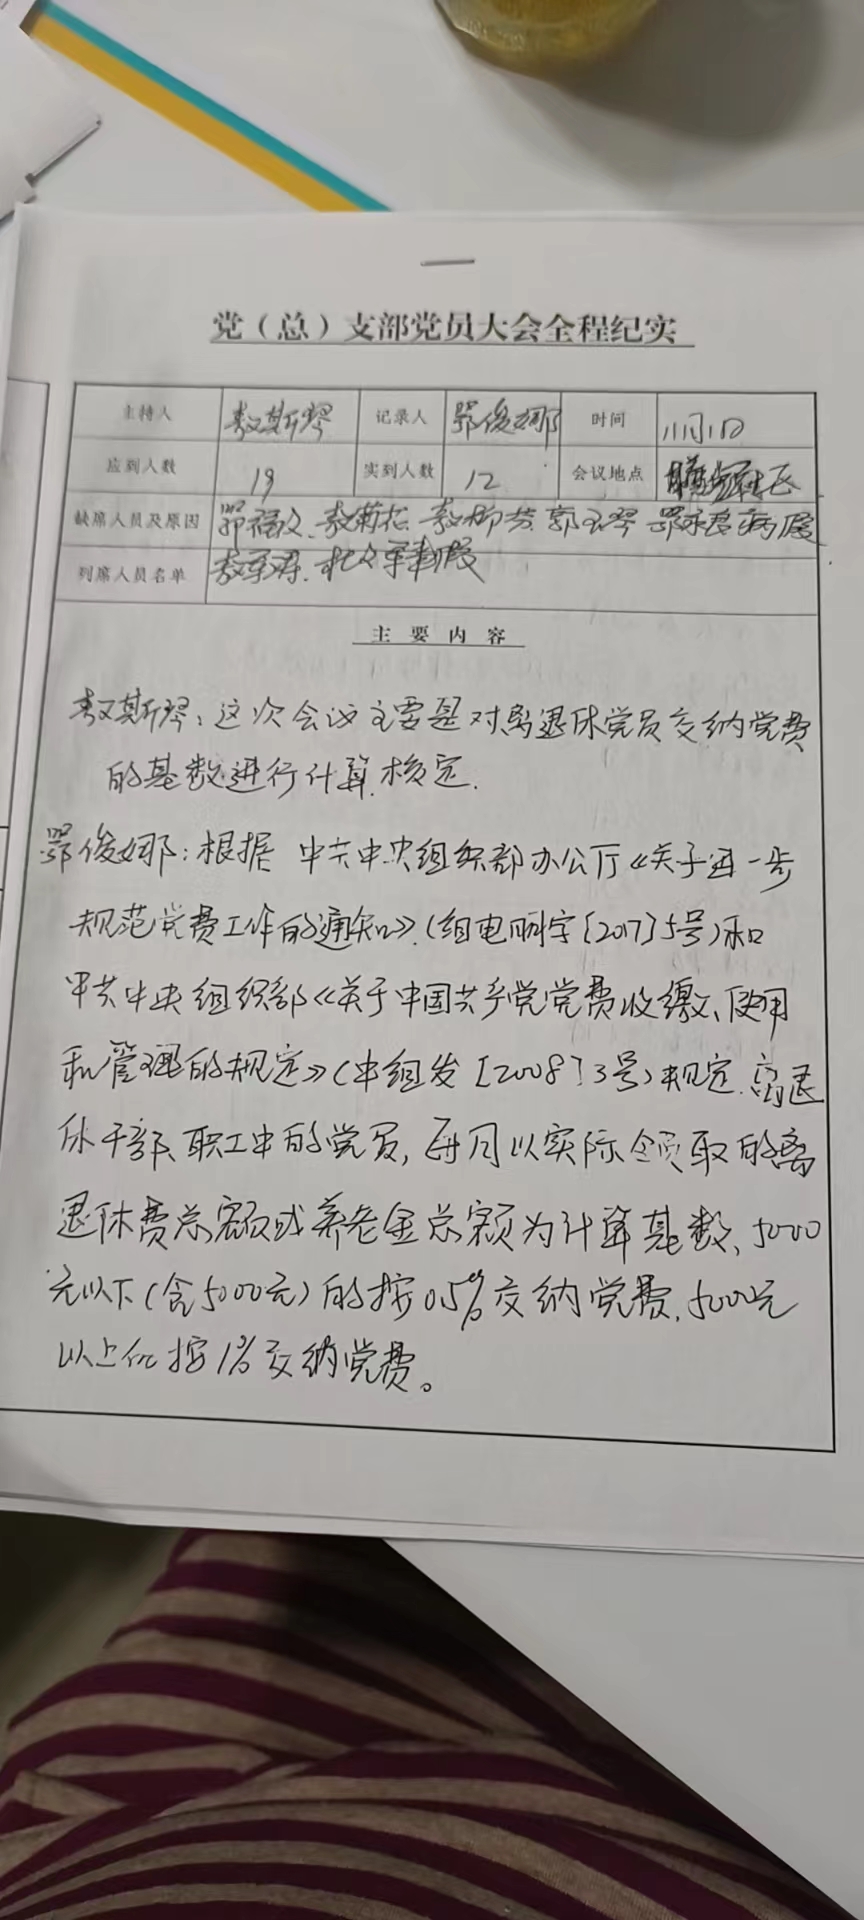 党（总）支部党员大会全程纪实
主持人 敖斯琴 记录人 鄂俊娜 时间 11月1日
应到人数 19 实到人数 12 会议地点
缺席人员及原因 鄂福文、敖菊花、敖柳芬、郭玉琴 鄂永良病假
列席人员名单 敖军涛、杜文军事假
主要内容
敖斯琴：这次会议主要是对离退休党员交纳党费
的基数进行计算、核定.
鄂俊娜：根据 中共中央组织部办公厅《关于进一步
规范党费工作的通知》（组电明字〔2017〕5号）和
中共中央组织部《关于中国共产党党费收缴、使用
和管理的规定》（中组发〔2008〕3号）规定.离退
休干部、职工中的党员，每月以实际领取的离
退休费总额或养老金总额为计算基数、5000
元以下（含5000元）的按0.5%交纳党费、5000元
以上的按1%交纳党费。